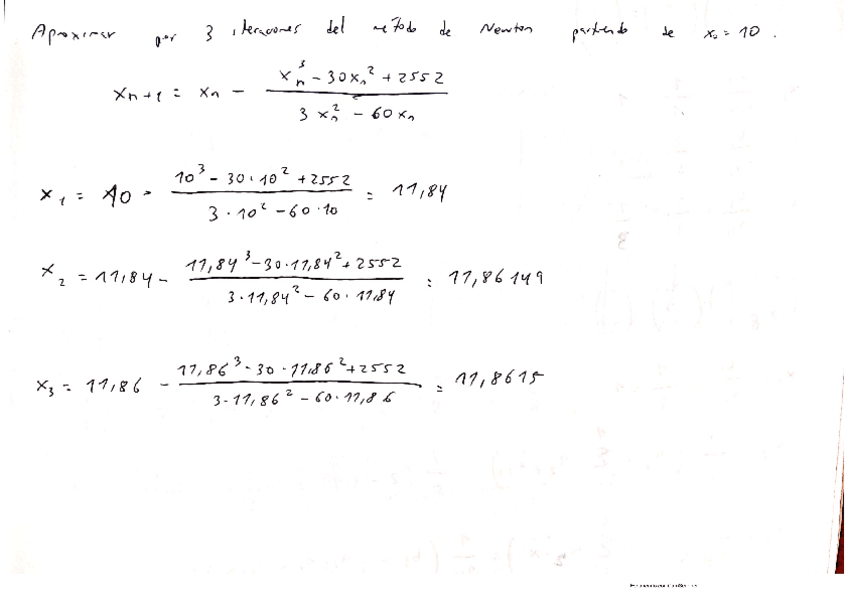 Aproximar por 3 iteraciones del método de Newton partiendo de x₀ = 10.
xₙ₊₁ = xₙ - (xₙ³ - 30xₙ² + 2552) / (3xₙ² - 60xₙ)
x₁ = 10 - (10³ - 30·10² + 2552) / (3·10² - 60·10) = 11,84
x₂ = 11,84 - (11,84³ - 30·11,84² + 2552) / (3·11,84² - 60·11,84) = 11,86149
x₃ = 11,86 - (11,86³ - 30·11,86² + 2552) / (3·11,86² - 60·11,86) = 11,8615